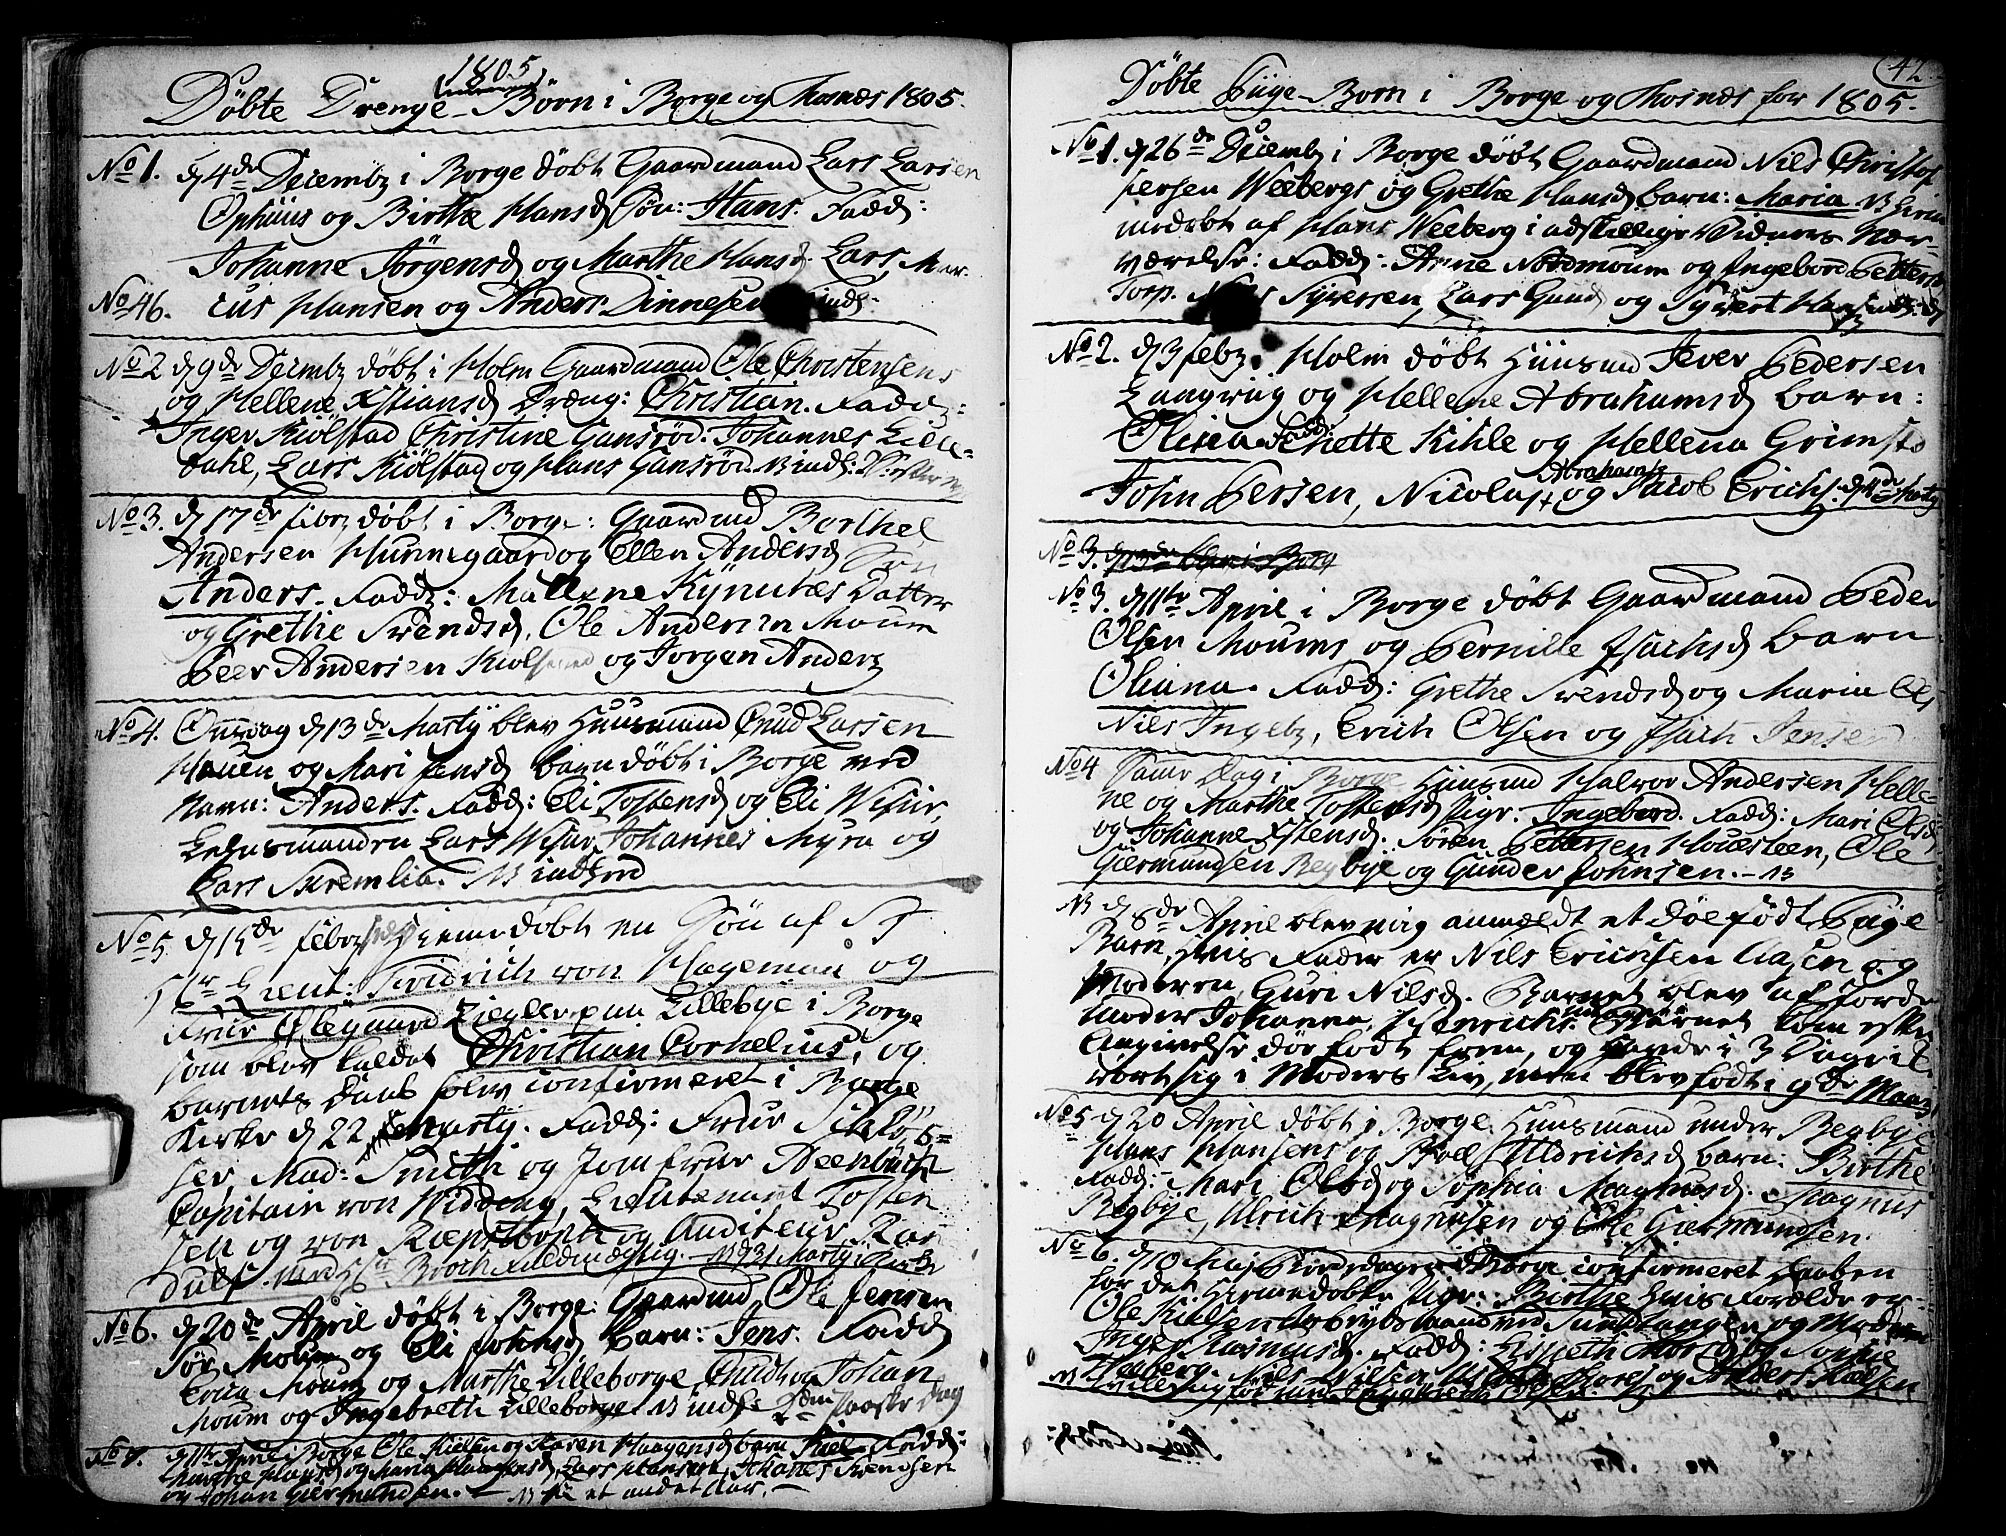 1805
Döbte Drenge-Börn i Borge og Thosnæs 1805.
No 1. d 4de Decembr i Borge döbt Gaardmand Lars Larsen
Ophuus og Birthe Hansd Sön: Hans. Fadd:
Johanne Jörgensd og Marthe Hansd. Lars, Mar-
No 46. cus Hansen og Anders Dinnesen
No 2 d 9de Decembr döbt i Holm Gaardmand Ole Christensens
og Hellene Xstiansd Dræng: Christian. Fadd:
Inger Kiölstad Christine Gansröd. Johannes Lille-
dahl, Lars Kiölstad og Hans Gansröd. B indl:
No 3. d 17de febr döbt i Borge: Gaardmd Borthel
Andersen Hunnegaard og Ellen Andersd Sön
Anders. Fadd: Mallene Kynutæs Datter
og Grethe Svendsd, Ole Andersen Moum
Peer Andersen Kiölstad og Jörgen Anders
No 4. Onsdag d 13de Marty blev Huusmand Cnud Larsen
Hauen og Mari Jensd barn döbt i Borge med
Navn: Anders. Fadd: Eli Tostensd og Eli Wisur,
Lars Wisur, Johannes Myra og
Lars Skremlia. B indförd
No 5 d 15de febr hjemmedöbt en Sön af Hr
Lieut: Fridrich von Hageman og
Frue Ölegaard Ziegler paa Lillebye i Borge
som blev kaldet Christian Cornelius, og
barnets Daab blev confirmeret i Borge
Kirke d 22 Marty. Fadd: Frue Schlös-
ser, Mad: Smith og Jomfrue Steenbuch
Capitain von Widding, Lieutenant Tosten
sen og von Ræpstorph og Auditeur Ran
dulf Broch d 31 Marty i Kirke
No 6. d 20de April döbt i Borge: Gaardmd Ole Jensen
Moum og Eli Johnsd barn: Jens. Fadd
Siör Moum og Marthe Lilleborge, Cnud og Johan
Moum og Ingebreth Lilleborge. B indl: 2den Paaske Dag
No 7. d 11te April i Borge Ole Kielsen og Karen Haagensd barn Kiel. Fadd:
Marthe Hansd og Maria Haagensd, Lars Hansen, Johanes Svendsen
og Johan Giermundsen. — B til et andet Aar. —
42
Döbte Pige-Born i Borge og Thosnæs for 1805.
No 1. d 26de Decembr i Borge döbt Gaardmand Nils Christof
fersen Weebergs og Grethe Hansd barn: Maria B hiem
medöbt af Hans Weeberg i adskillige Vidners Nær-
værelse: Fadd: Anne Nordmoum og Ingebord Pettersd
Torp. Nils Syversen, Lars Gund og Syvert Hansen
No 2. d 3 Febr i Holm döbt Huusmd Iver Pedersen
Langvig og Hellene Abrahamsd barn:
Olixea Fadd: Anette Kihle og Hellena Grimsto
John Persen, Nicolay Abrahams og Jacob Erichs. d 4de Marty
No 3. d 13de
No 3. d 11te April i Borge döbt Gaardmand Peder
Olsen Moums og Pernille Isachsd barn
Oliana. Fadd: Grethe Svendsd og Maria Ols
Nils Ingebr, Erich Olsen og Isach Jensen
No 4 Samme Dag i Borge Huusmd Halvor Andersen Helle-
ne og Marthe Tostensd Pige: Ingebord. Fadd: Mari Olsd
og Johanne Xstensd. Sören Pettersen Houesteen, Ole
Giermundsen Begbye og Gunder Johnsen. – B
B d 8de April blev mig anmældt et döefödt Pige
Barn, hvis Fader er Nils Erichsen Aasen og
Moderen Guri Nilsd. Barnet blev af Jorde
moder Johanna Henrichs. Barnet kom efter
Angivelse död födt frem, og havde i 3 Dage ik
rört sig i Moders Liv, men blev födt i 9de Maan
No 5 d 20 April döbt i Borge: Huusmand under Begbye
Hans Hansens og Boel Uldrichsd barn: Birthe
Fadd: Mari Olsd og Sophia Magnusd. Magnus
Begbye, Ulrich Magnusen og Ole Giermundsen.
No 6. d 10 Maj Bededagen i Borge confirmeret Daaben
for det hiemmedöbte Pige: Birthe hvis Forældre er
Ole Kielsen Arbeydsmand ved Sundlangen og Moderen
Inger Rasmusd. Fadd: Lisbeth Sophie
Haaberg. Nils Nilsen, Thores og Anders Nielsen